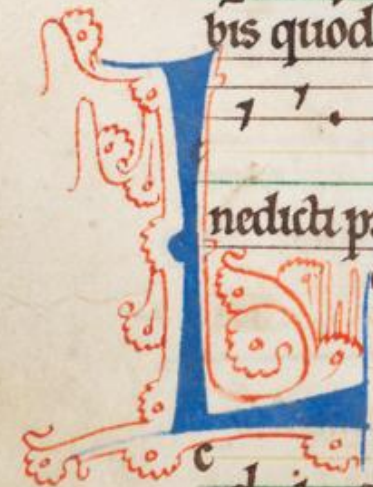 bis quod
nedicti p
L
c